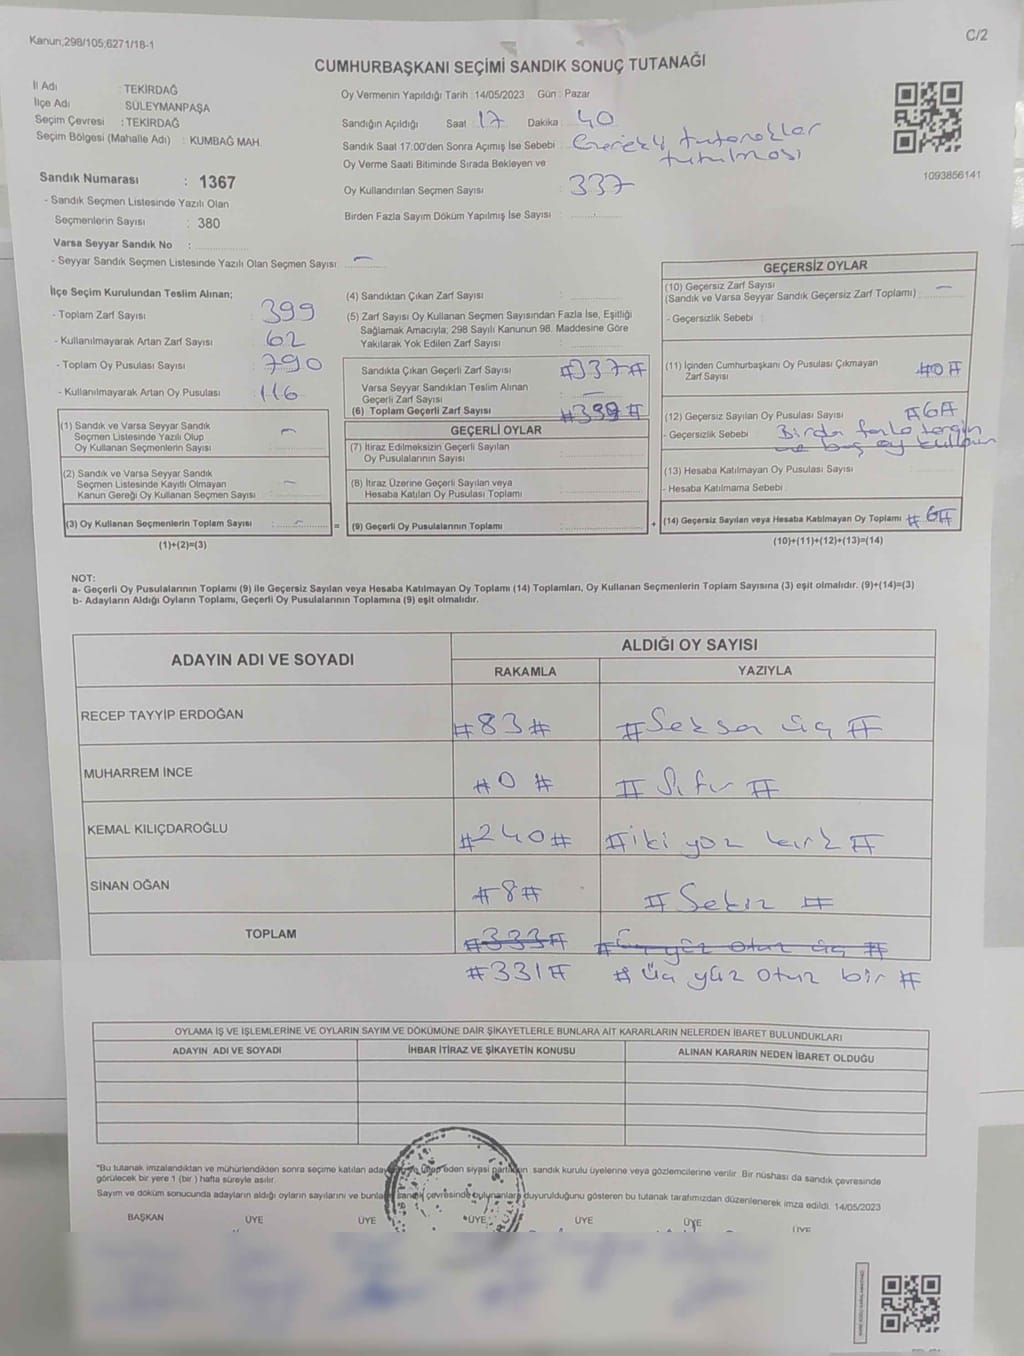 Kanun;298/105;6271/18-1
C/2
CUMHURBAŞKANI SEÇİMİ SANDIK SONUÇ TUTANAĞI
İl Adı : TEKİRDAĞ
İlçe Adı : SÜLEYMANPAŞA
Seçim Çevresi : TEKİRDAĞ
Seçim Bölgesi (Mahalle Adı) : KUMBAĞ MAH.
Sandık Numarası : 1367
- Sandık Seçmen Listesinde Yazılı Olan
Seçmenlerin Sayısı : 380
Varsa Seyyar Sandık No :
- Seyyar Sandık Seçmen Listesinde Yazılı Olan Seçmen Sayısı: —
Oy Vermenin Yapıldığı Tarih : 14/05/2023 Gün : Pazar
Sandığın Açıldığı Saat 17 Dakika : 40
Sandık Saat 17.00'den Sonra Açımış İse Sebebi : Gerekli tutanaklar
tutulması
Oy Verme Saati Bitiminde Sırada Bekleyen ve
Oy Kullandırılan Seçmen Sayısı : 337
Birden Fazla Sayım Döküm Yapılmış İse Sayısı :
1093856141
İlçe Seçim Kurulundan Teslim Alınan;
- Toplam Zarf Sayısı : 399
- Kullanılmayarak Artan Zarf Sayısı : 62
- Toplam Oy Pusulası Sayısı : 790
- Kullanılmayarak Artan Oy Pusulası : 116
(1) Sandık ve Varsa Seyyar Sandık
Seçmen Listesinde Yazılı Olup
Oy Kullanan Seçmenlerin Sayısı : —
(2) Sandık ve Varsa Seyyar Sandık
Seçmen Listesinde Kayıtlı Olmayan
Kanun Gereği Oy Kullanan Seçmen Sayısı : —
(3) Oy Kullanan Seçmenlerin Toplam Sayısı : —
(1)+(2)=(3)
(4) Sandıktan Çıkan Zarf Sayısı :
(5) Zarf Sayısı Oy Kullanan Seçmen Sayısından Fazla İse, Eşitliği
Sağlamak Amacıyla; 298 Sayılı Kanunun 98. Maddesine Göre
Yakılarak Yok Edilen Zarf Sayısı :
Sandıkta Çıkan Geçerli Zarf Sayısı : #337#
Varsa Seyyar Sandıktan Teslim Alınan
Geçerli Zarf Sayısı : —
(6) Toplam Geçerli Zarf Sayısı
GEÇERLİ OYLAR
(7) İtiraz Edilmeksizin Geçerli Sayılan
Oy Pusulalarının Sayısı :
(8) İtiraz Üzerine Geçerli Sayılan veya
Hesaba Katılan Oy Pusulası Toplamı :
= (9) Geçerli Oy Pusulalarının Toplamı : +
GEÇERSİZ OYLAR
(10) Geçersiz Zarf Sayısı
(Sandık ve Varsa Seyyar Sandık Geçersiz Zarf Toplamı) : —
- Geçersizlik Sebebi :
(11) İçinden Cumhurbaşkanı Oy Pusulası Çıkmayan
Zarf Sayısı : #0#
(12) Geçersiz Sayılan Oy Pusulası Sayısı : #6#
- Geçersizlik Sebebi : Birden fazla tercih
ve boş oy
(13) Hesaba Katılmayan Oy Pusulası Sayısı :
- Hesaba Katılmama Sebebi :
(14) Geçersiz Sayılan veya Hesaba Katılmayan Oy Toplamı : #6#
(10)+(11)+(12)+(13)=(14)
NOT:
a- Geçerli Oy Pusulalarının Toplamı (9) ile Geçersiz Sayılan veya Hesaba Katılmayan Oy Toplamı (14) Toplamları, Oy Kullanan Seçmenlerin Toplam Sayısına (3) eşit olmalıdır. (9)+(14)=(3)
b- Adayların Aldığı Oyların Toplamı, Geçerli Oy Pusulalarının Toplamına (9) eşit olmalıdır.
ADAYIN ADI VE SOYADI ALDIĞI OY SAYISI
RAKAMLA YAZIYLA
RECEP TAYYİP ERDOĞAN #83# #Seksen üç#
MUHARREM İNCE #0# #Sıfır#
KEMAL KILIÇDAROĞLU #240# #iki yüz kırk#
SİNAN OĞAN #8# #Sekiz#
TOPLAM #333# #Üç yüz otuz üç#
#331# #üç yüz otuz bir#
OYLAMA İŞ VE İŞLEMLERİNE VE OYLARIN SAYIM VE DÖKÜMÜNE DAİR ŞİKAYETLERLE BUNLARA AİT KARARLARIN NELERDEN İBARET BULUNDUKLARI
ADAYIN ADI VE SOYADI İHBAR İTİRAZ VE ŞİKAYETİN KONUSU ALINAN KARARIN NEDEN İBARET OLDUĞU
*Bu tutanak imzalandıktan ve mühürlendikten sonra seçime katılan eden siyasi partilerin sandık kurulu üyelerine veya gözlemcilerine verilir. Bir nüshası da sandık çevresinde
görülecek bir yere 1 (bir) hafta süreyle asılır.
Sayım ve döküm sonucunda adayların aldığı oyların sayılarını ve bunların sandık çevresinde bulunanlara duyurulduğunu gösteren bu tutanak tarafımızdan düzenlenerek imza edildi. 14/05/2023
BAŞKAN ÜYE ÜYE ÜYE ÜYE ÜYE ÜYE